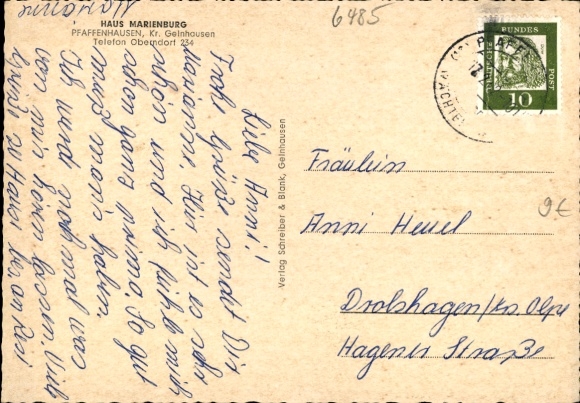 6485
HAUS MARIENBURG
PFAFFENHAUSEN, Kr. Gelnhausen
Telefon Oberndorf 234
Liebe Anni!
Frohe Grüße sendet Dir
Marianne. Hier ist es sehr
schön und ich fühle mich
schon ganz prima. So gut
muß man haben.
Ich werd noch mal was
von mir hören lassen. Viele
Grüße zu Haus
Marianne
Verlag Schreiber & Blank, Gelnhausen
DEUTSCHE
BUNDES
POST
10
Fräulein
Anni Heuel
Drolshagen/Krs. Olpe
Hagener Straße
9€